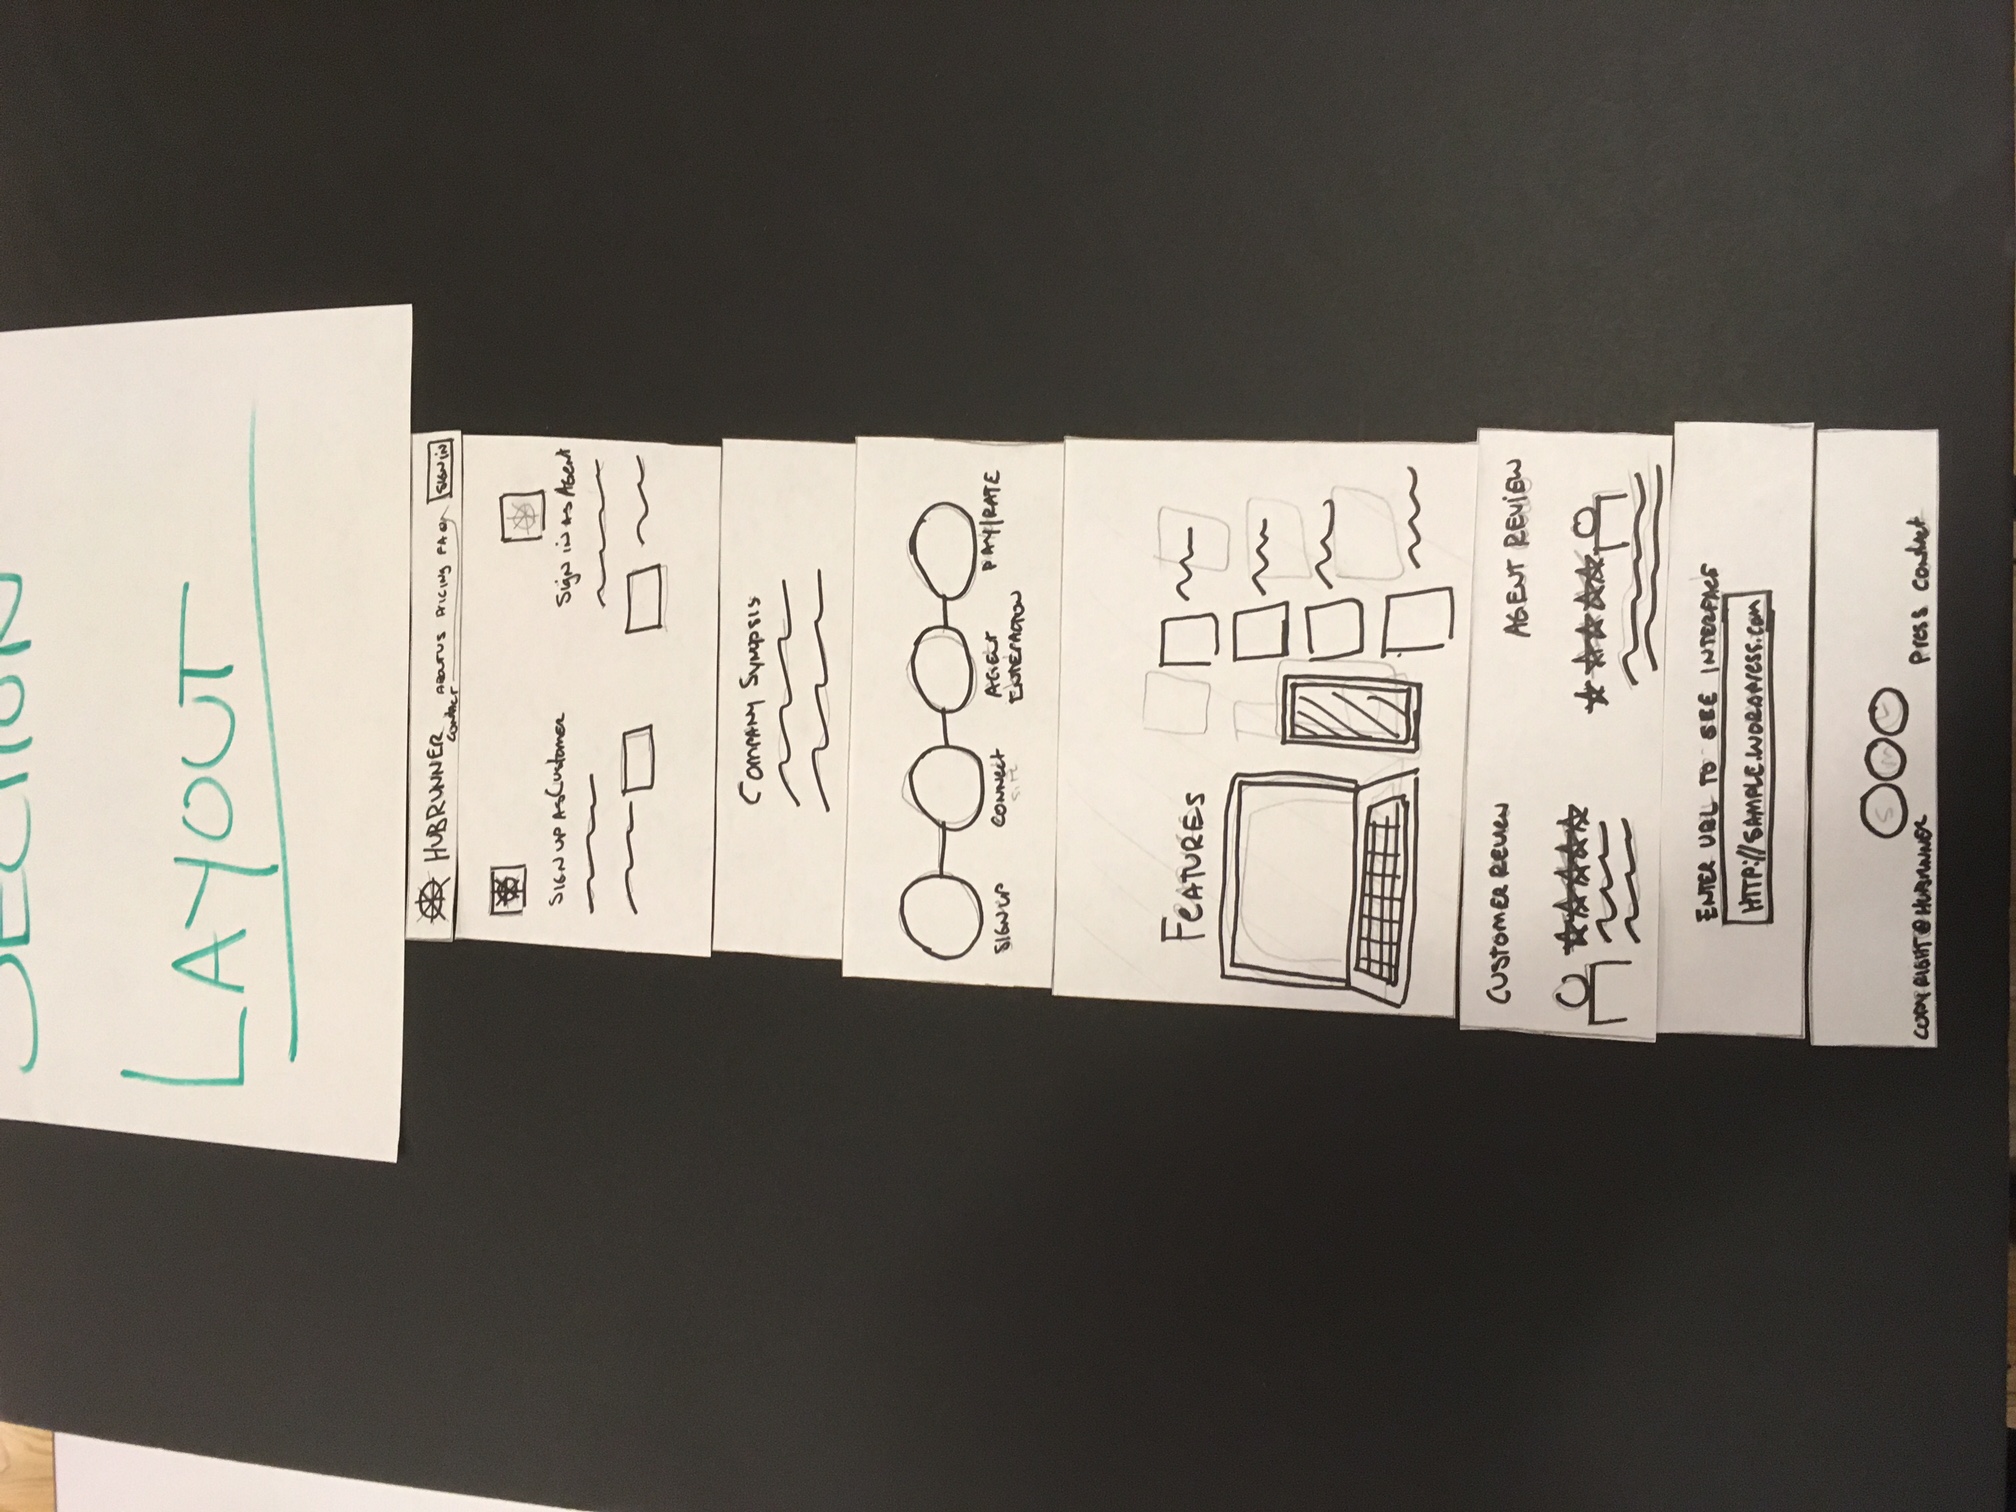 SECTION
LAYOUT
HUBRUNNER
CONTACT ABOUT US PRICING FAQ
SIGN IN
SIGN UP AS Customer
Sign in as Agent
Company Synopsis
SIGN UP
CONNECT
SITE
AGENT
INTERACTION
PAY/RATE
FEATURES
CUSTOMER REVIEW
AGENT REVIEW
ENTER URL TO SEE INTERFACE
HTTP://SAMPLE.WORDPRESS.COM
COPYRIGHT@HUBRUNNER
Press Contact